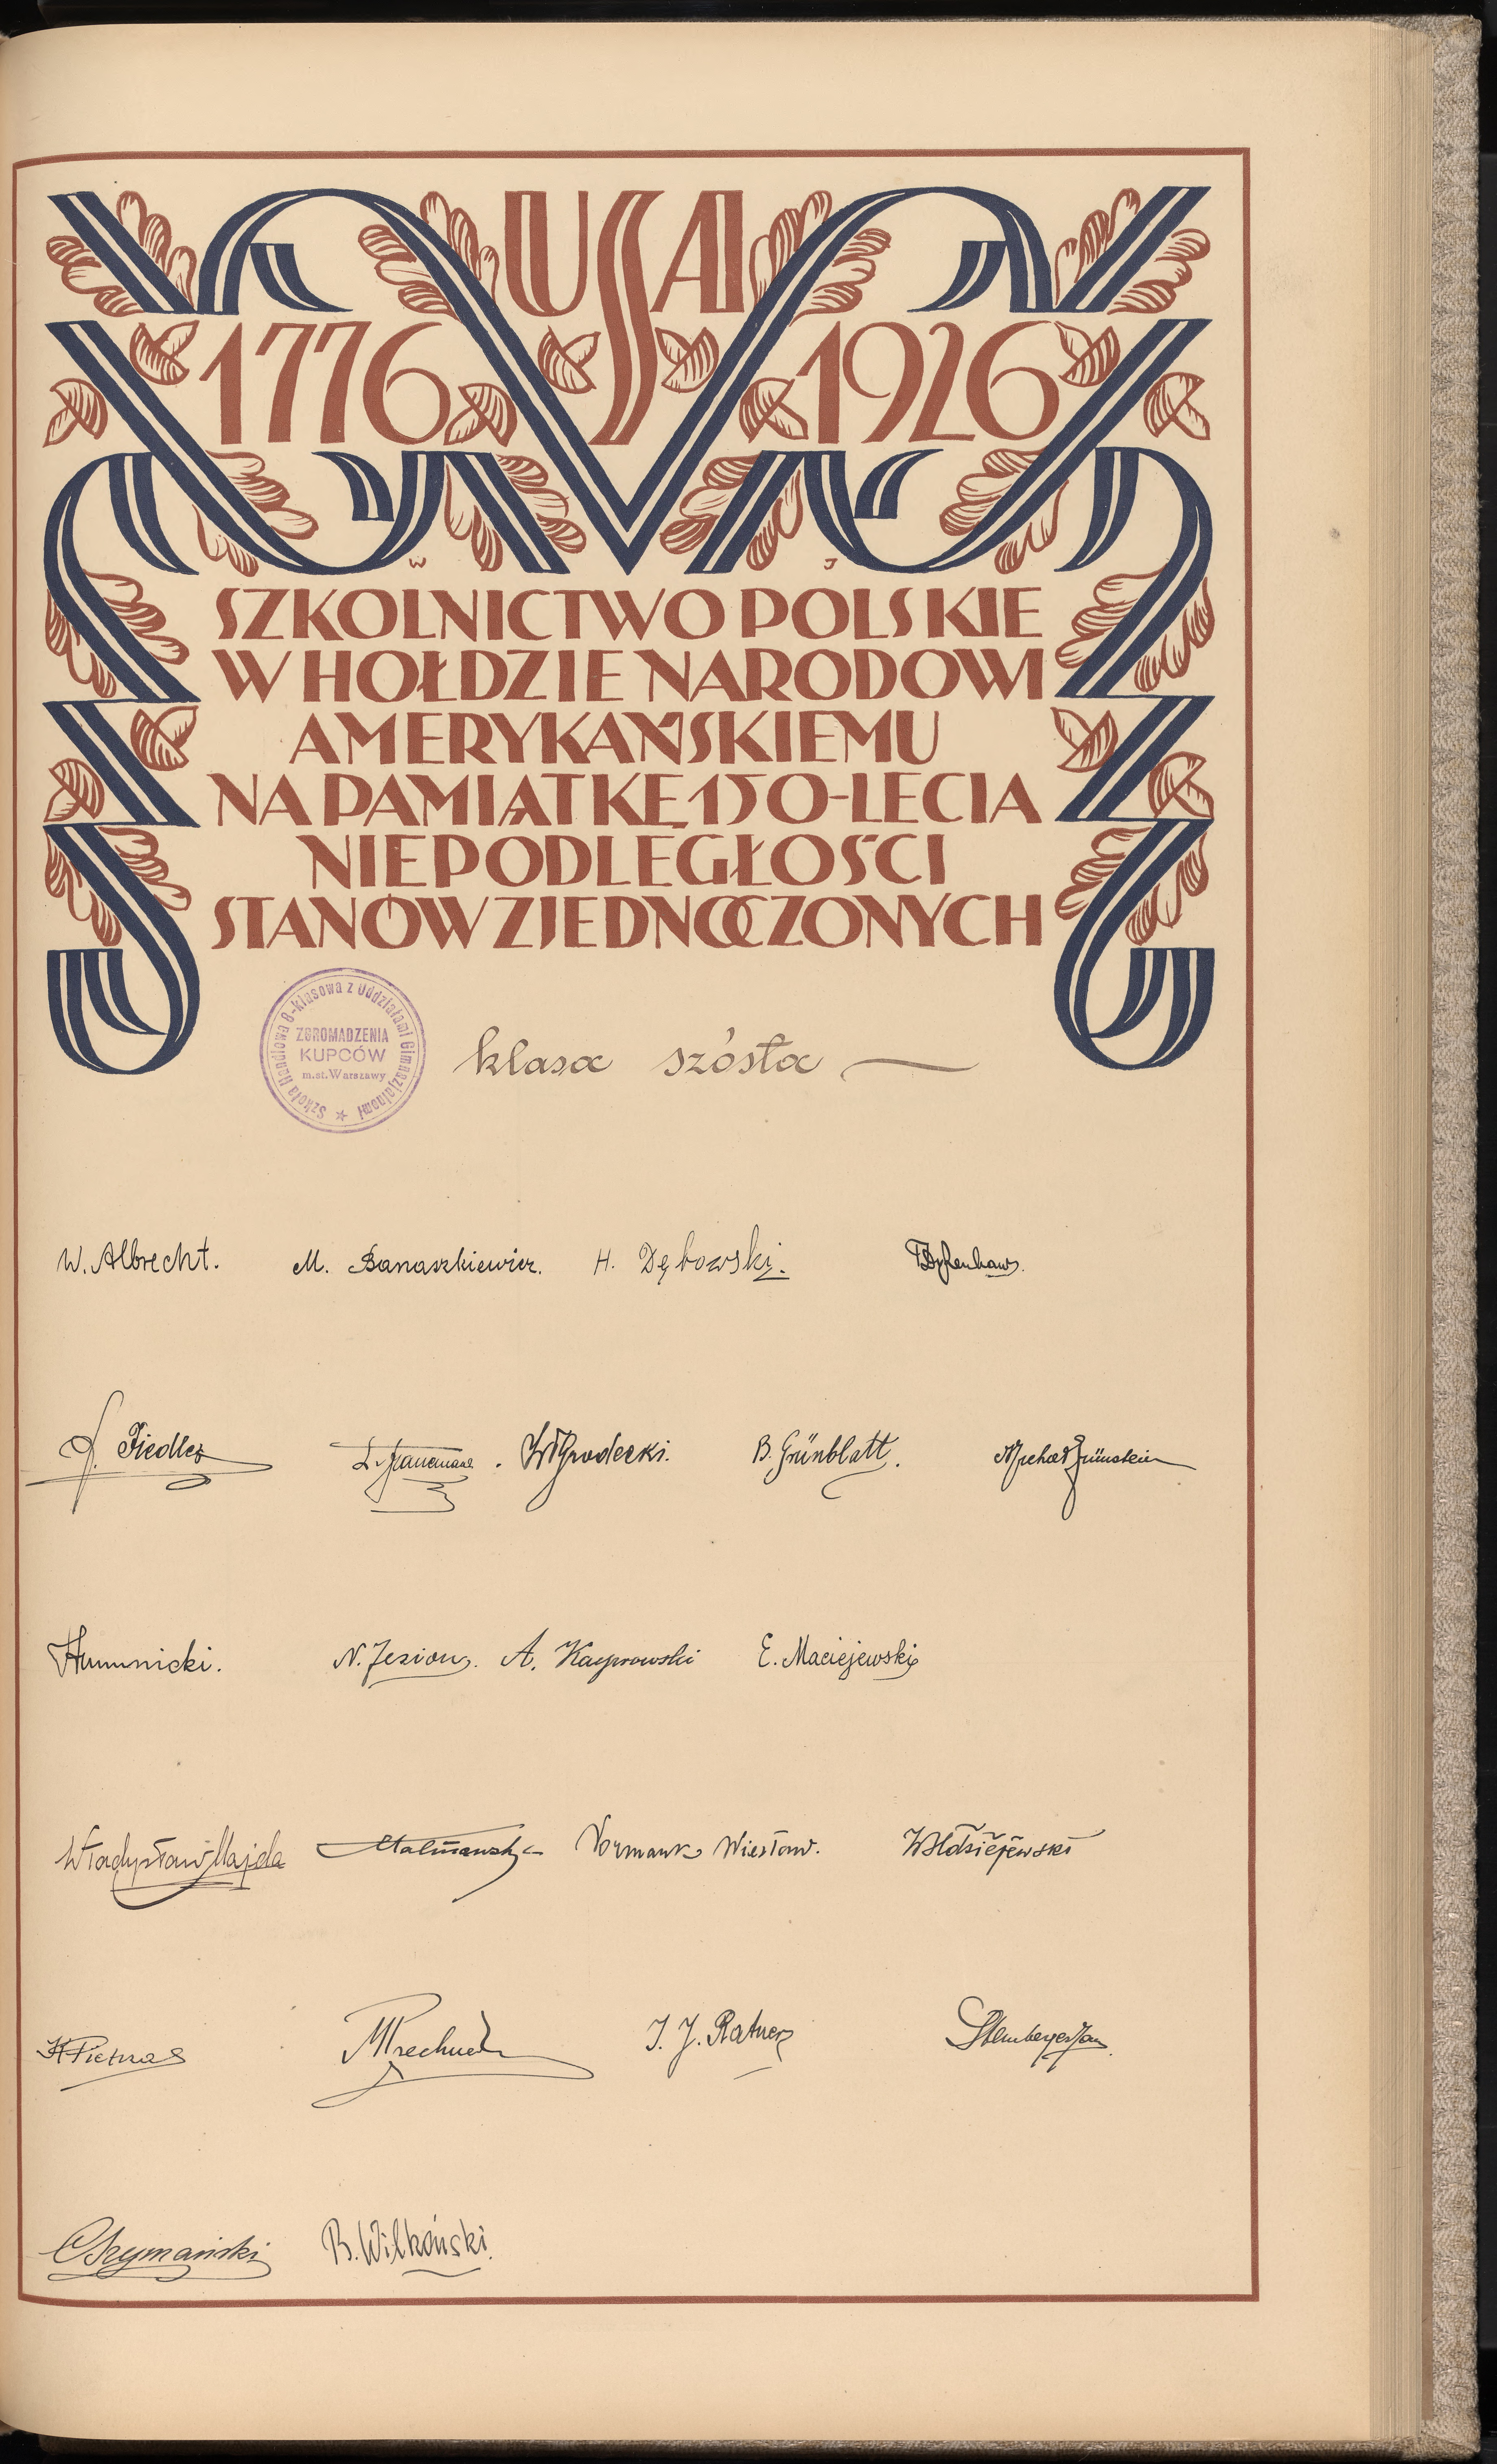 USA
1776 1926
W J
SZKOLNICTWO POLSKIE
W HOŁDZIE NARODOWI
AMERYKAŃSKIEMU
NA PAMIĄTKĘ 150-LECIA
NIEPODLEGŁOŚCI
STANÓW ZJEDNOCZONYCH
Szkoła Handlowa 8-klasowa z Oddziałami Gimnazjalnemi
ZGROMADZENIA
KUPCÓW
m.st. Warszawy
klasa szósta
W. Albrecht. M. Banaszkiewicz. H. Dębowski.
Fiedler Grodecki. B. Grünblatt. Grünstein
Humnicki. N. Jezion. A. Kacprowski E. Maciejewski
Władysław Majda Normark Wiesław.
K Pietras I. J. Ratner
Szymański B. Wilkoński.